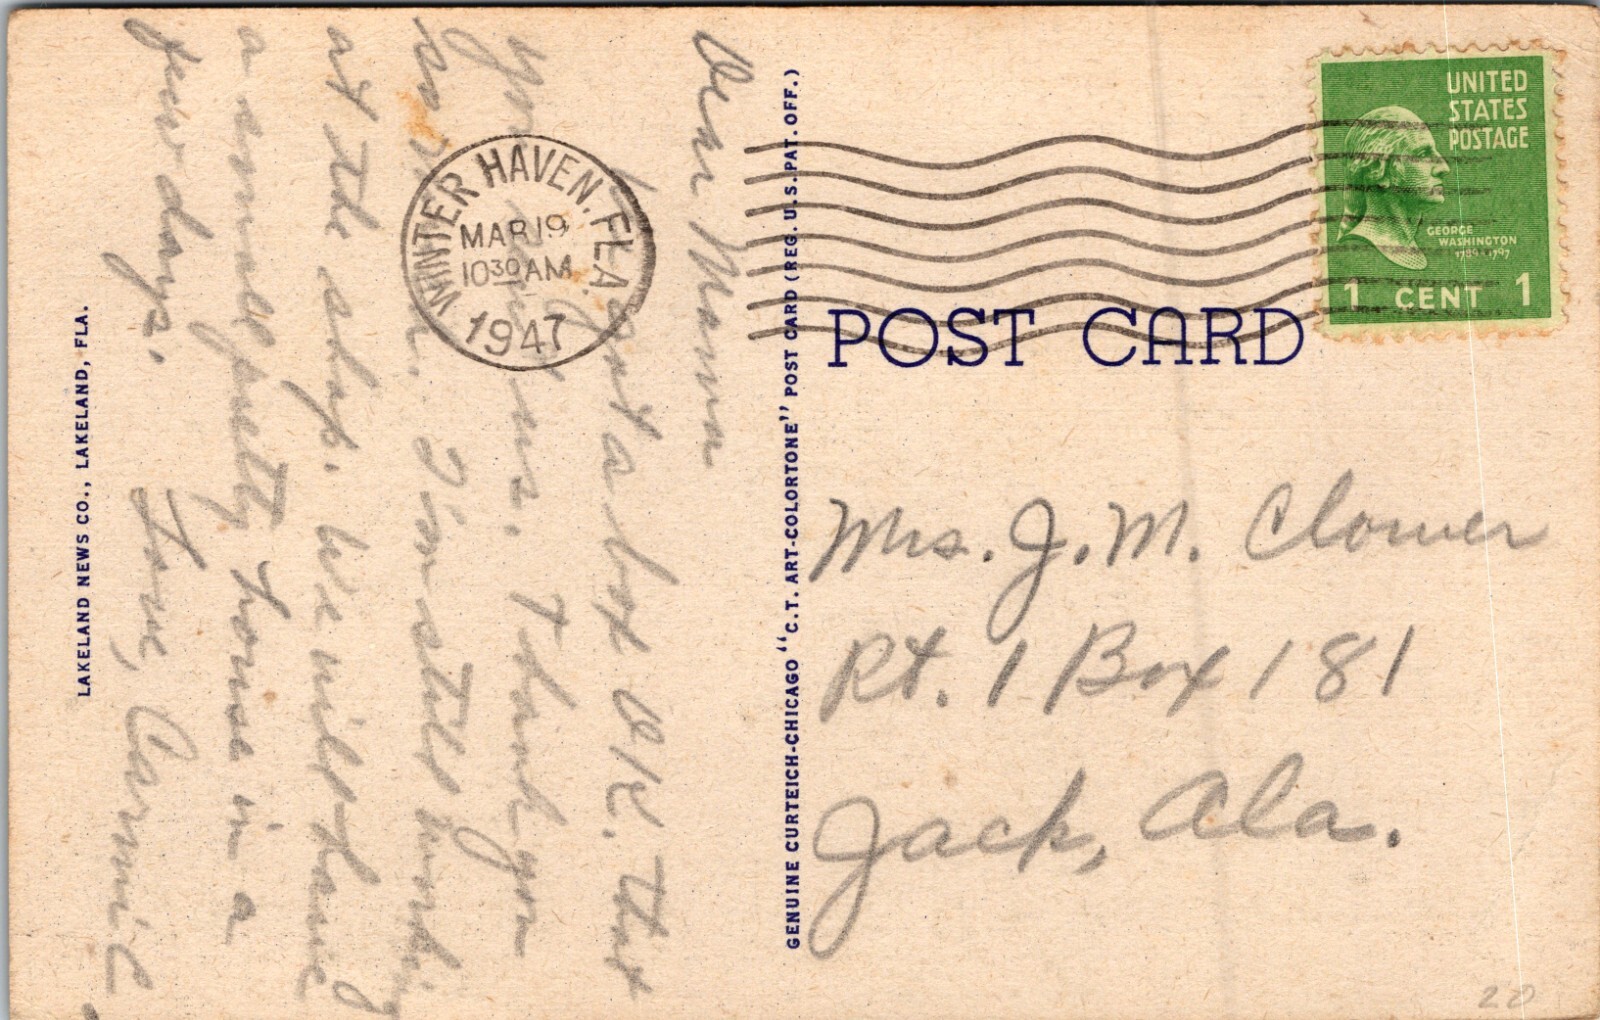 Dear Mama
Got a box O.K. that
you sent us. Thank you
so much. I'm still working
at the shop. We will have
a small pretty house in a
few days.
Love, Carmil
LAKELAND NEWS CO., LAKELAND, FLA.
GENUINE CURTEICH-CHICAGO "C.T. ART-COLORTONE" POST CARD (REG. U.S. PAT. OFF.)
WINTER HAVEN, FLA.
MAR 19
10 30 AM
1947
UNITED
STATES
POSTAGE
GEORGE
WASHINGTON
1789-1797
1 CENT 1
POST CARD
Mrs. J. M. Clower
Rt. 1 Box 181
Jack, Ala.
20